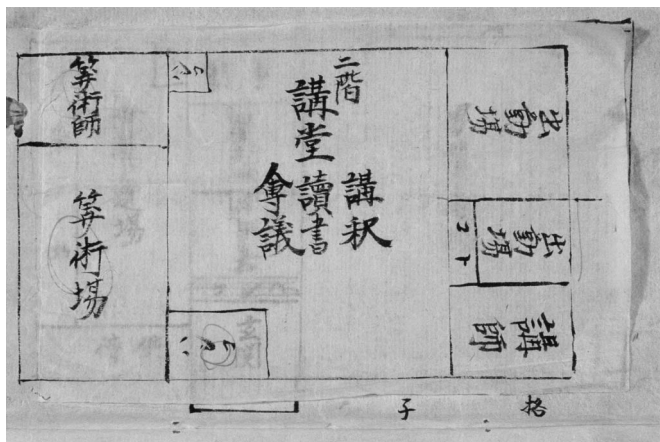 出勤場
出勤場
講師
二階
講釈
講堂
讀書
會議
筭術師
筭術場
格子